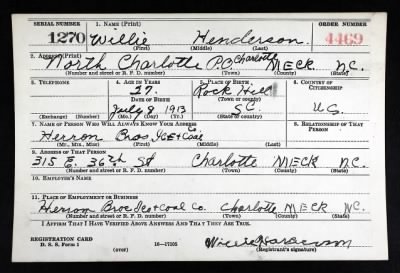 SERIAL NUMBER 1. NAME (Print) ORDER NUMBER
1270 Willie Henderson 4469
(First) (Middle) (Last)
2. ADDRESS (Print)
North Charlotte P.O. Charlotte MECK N.C.
(Number and street or R. F. D. number) (Town) (County) (State)
3. TELEPHONE 4. AGE IN YEARS 5. PLACE OF BIRTH 6. COUNTRY OF CITIZENSHIP
27. Rock Hill
DATE OF BIRTH (Town or county)
July 9 1913 S.C. U.S.
(Exchange) (Number) (Mo.) (Day) (Yr.) (State or country)
7. NAME OF PERSON WHO WILL ALWAYS KNOW YOUR ADDRESS 8. RELATIONSHIP OF THAT PERSON
Herron Bros. Ice & Coal Co
(Mr., Mrs., Miss) (First) (Middle) (Last)
9. ADDRESS OF THAT PERSON
315 E. 36th St Charlotte MECK N.C.
(Number and street or R. F. D. number) (Town) (County) (State)
10. EMPLOYER'S NAME
11. PLACE OF EMPLOYMENT OR BUSINESS
Herron Bros Ice & Coal Co. Charlotte MECK N.C.
(Number and street or R. F. D. number) (Town) (County) (State)
I AFFIRM THAT I HAVE VERIFIED ABOVE ANSWERS AND THAT THEY ARE TRUE.
REGISTRATION CARD
D. S. S. Form 1 (over) 16—17105 Willie
(Registrant's signature)